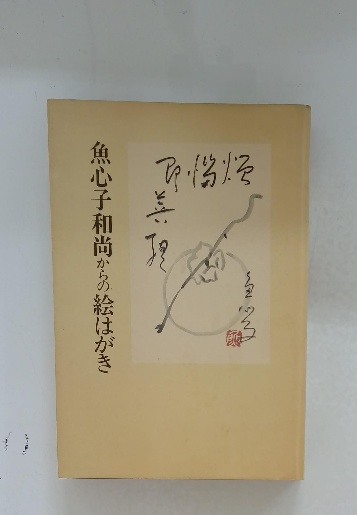 魚心子和尚からの絵はがき
煩悩
即菩提